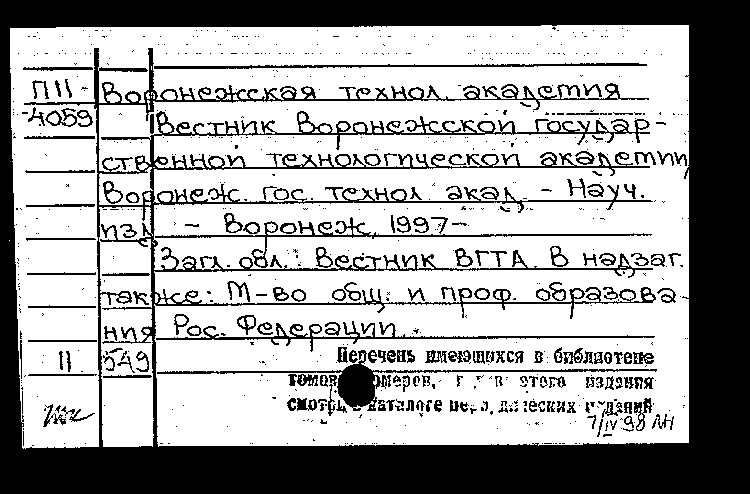 П11- Воронежская технол. академия
4059 Вестник Воронежской государ-
ственной технологической академии
Воронеж. гос. технол. акад. - Науч.
изд. - Воронеж, 1997-
Загл. обл.: Вестник ВГТА. В надзаг.
также: М-во общ. и проф. образова-
ния Рос. Федерации.
11 549 Перечень имеющихся в библиотеке
томов, номеров, этого издания
смотри каталоге изданий
7/IV 98